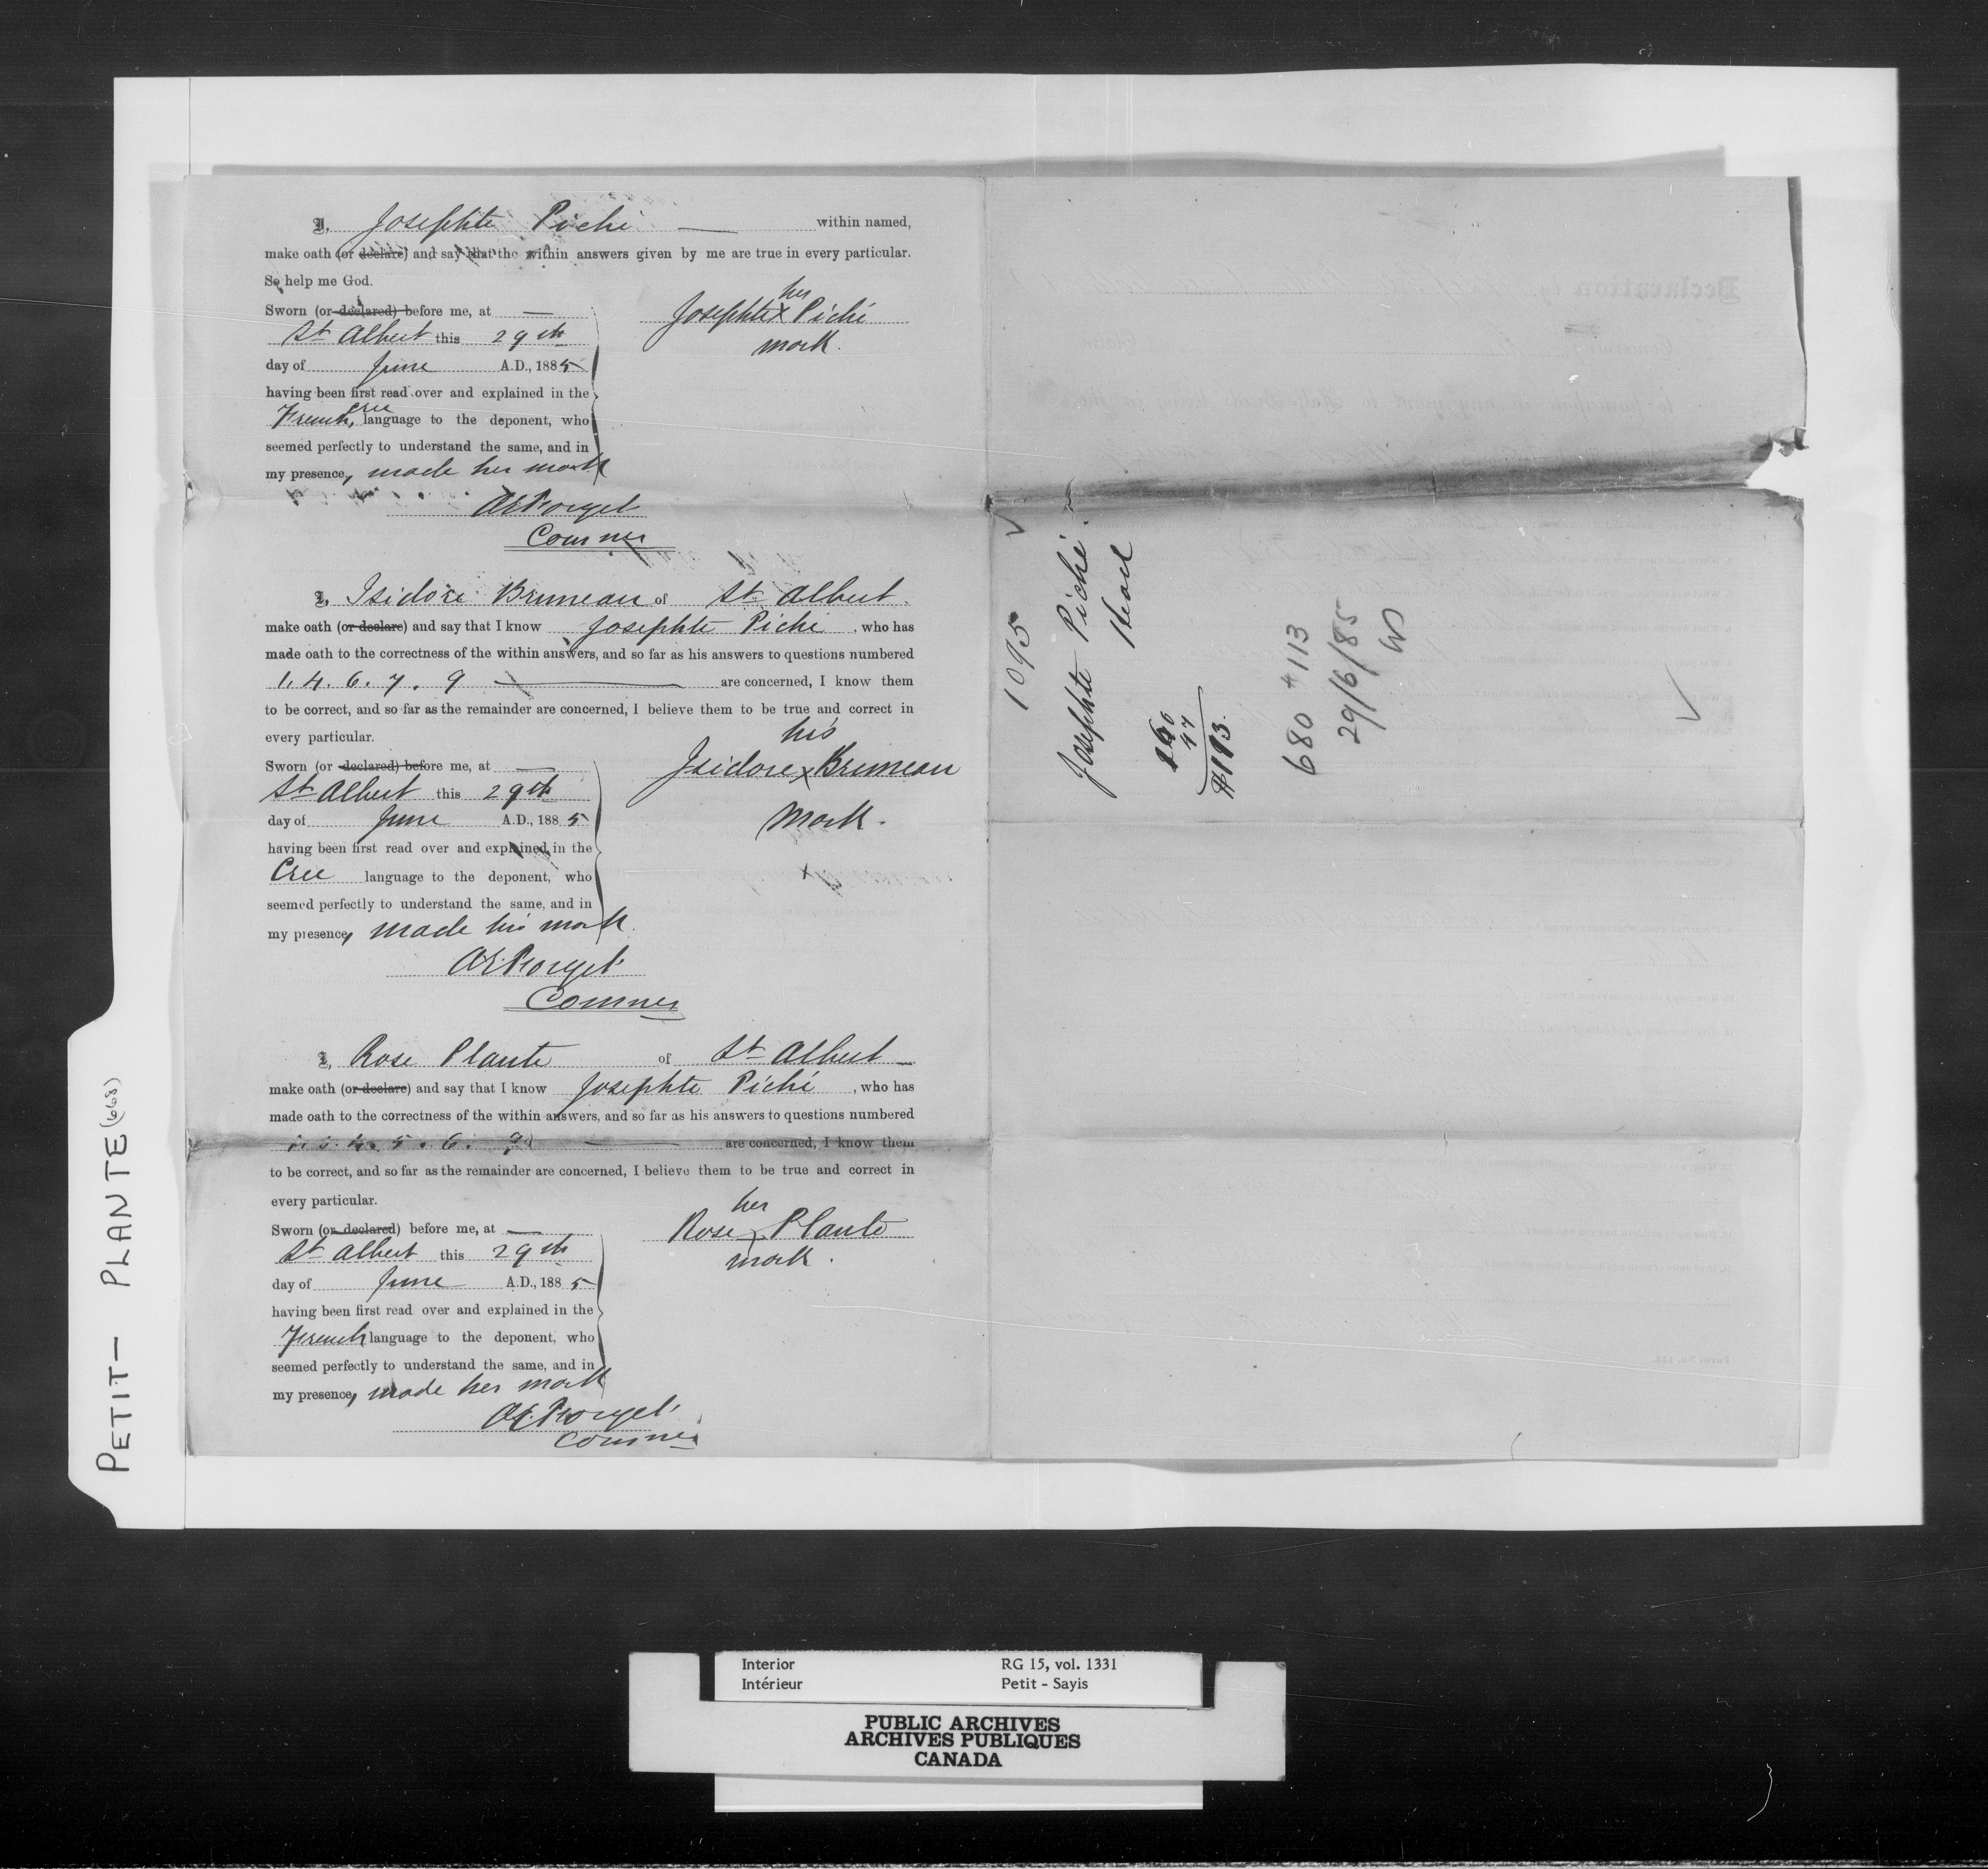 I, Josephte Piché — within named,
make oath (or declare) and say that the within answers given by me are true in every particular.
So help me God.
Sworn (or declared) before me, at —
St Albert this 29th
day of June A.D., 1885
having been first read over and explained in the
French, Cree language to the deponent, who
seemed perfectly to understand the same, and in
my presence, made her mark
her
Josephte x Piché
mark.
AE Forget
Commer
I, Isidore Bruneau of St Albert.
make oath (or declare) and say that I know Josephte Piché, who has
made oath to the correctness of the within answers, and so far as his answers to questions numbered
1. 4. 6. 7. 9 — are concerned, I know them
to be correct, and so far as the remainder are concerned, I believe them to be true and correct in
every particular.
Sworn (or declared) before me, at —
St Albert this 29th
day of June A.D., 1885
having been first read over and explained in the
Cree language to the deponent, who
seemed perfectly to understand the same, and in
my presence, made his mark.
his
Isidore x Bruneau
mark.
AE Forget
Commer
I, Rose Plante of St Albert —
make oath (or declare) and say that I know Josephte Piché, who has
made oath to the correctness of the within answers, and so far as his answers to questions numbered
4. 5. 6. — are concerned, I know them
to be correct, and so far as the remainder are concerned, I believe them to be true and correct in
every particular.
Sworn (or declared) before me, at —
St Albert this 29th
day of June A.D., 1885
having been first read over and explained in the
French language to the deponent, who
seemed perfectly to understand the same, and in
my presence, made her mark
her
Rose x Plante
mark.
AE Forget
Commer
1095
Josephte Piché.
Head
680 #113
29/6/85
PETIT - PLANTE (668)
Interior RG 15, vol. 1331
Intérieur Petit - Sayis
PUBLIC ARCHIVES
ARCHIVES PUBLIQUES
CANADA